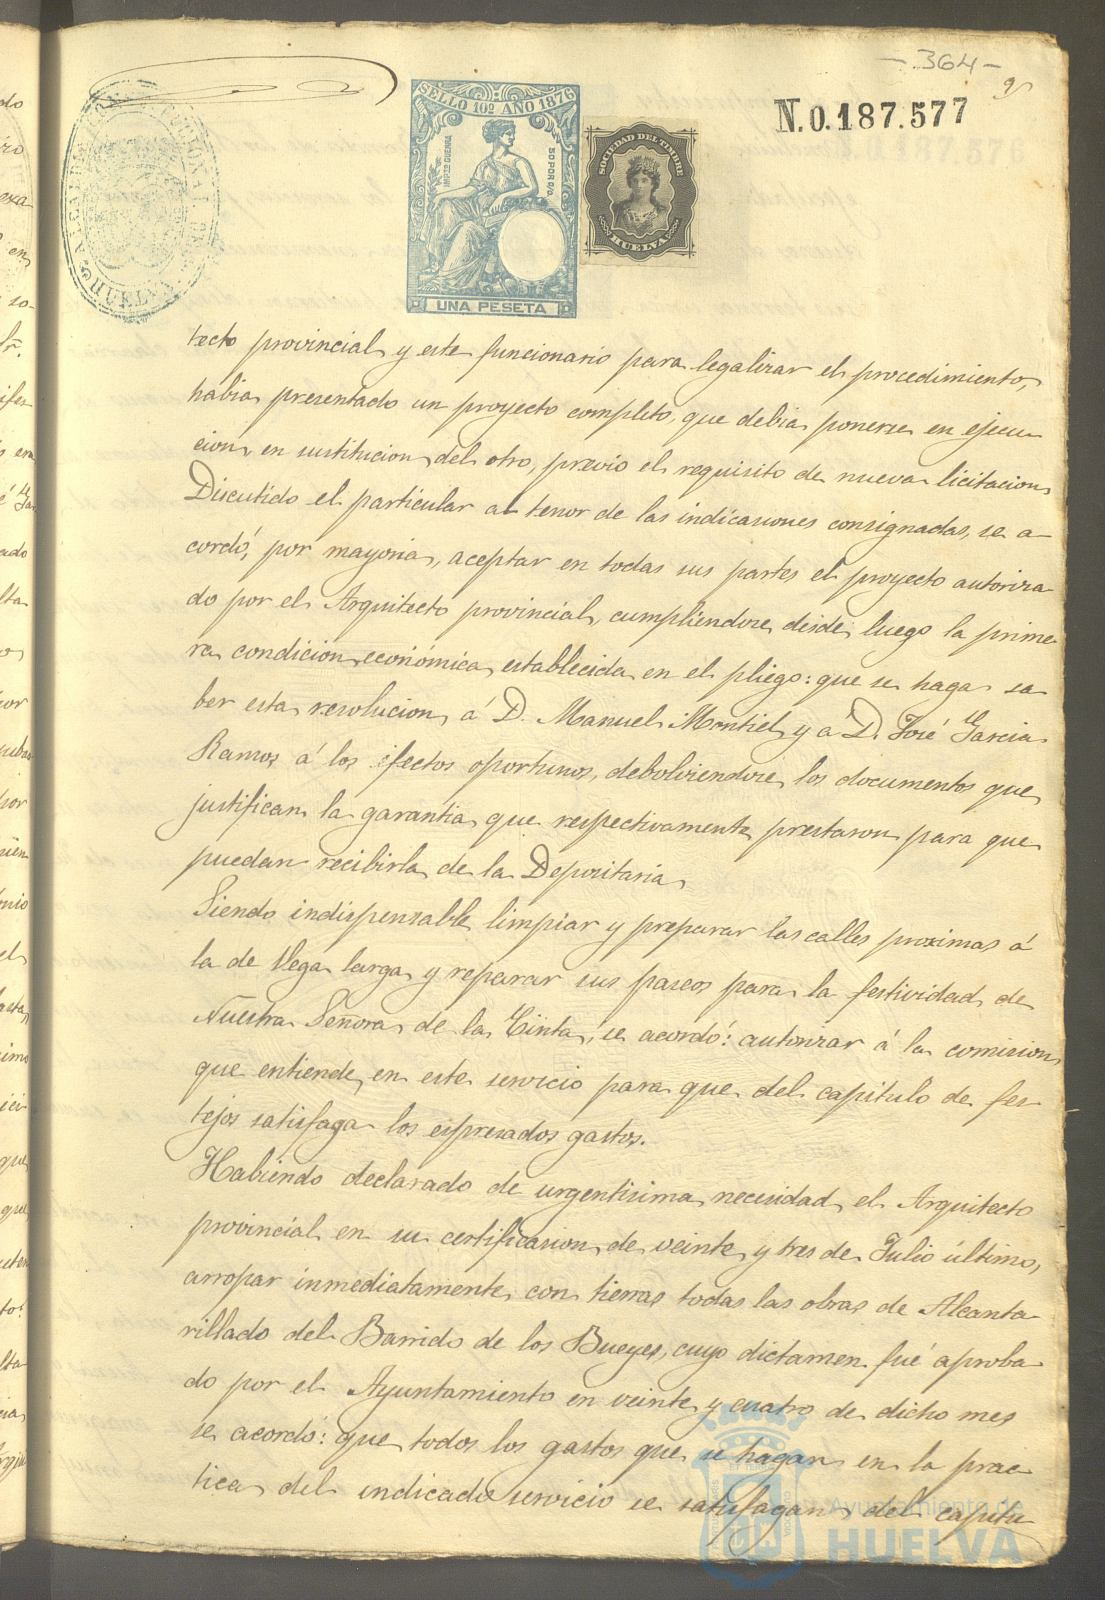 - 364 -
N.0.187.577
SELLO 10º AÑO 1876
IMPTO GUERRA
50 POR 0/0
UNA PESETA
SOCIEDAD DEL TIMBRE
HUELVA
HUELVA
tecto provincial y este funcionario para legalizar el procedimiento,
habia presentado un proyecto completo, que debia ponerse en ejecu-
cion, en sustitucion del otro, previo el requisito de nueva licitacion.
Discutido el particular al tenor de las indicasiones consignadas, se a-
cordó, por mayoria, aceptar en todas sus partes el proyecto autoriza-
do por el Arquitecto provincial, cumpliendose, desde luego la prime-
ra condicion económica, establecida en el pliego: que se haga sa-
ber esta resolucion, á D. Manuel Montiel, y á D. José Garcia
Ramos á los efectos oportunos, debolviendose los documentos que
justifican la garantia que respectivamente prestaron para que
puedan recibirla de la Depositaria
Siendo indispensable limpiar y preparar las calles proximas á
la de Vega larga y reparar sus paseos para la festividad de
Nuestra Señora de la Cinta, se acordó: autorizar á la comision,
que entiende en este servicio para que del capitulo de fes-
tejos satisfaga los espresados gastos.
Habiendo declarado de urgentisima necesidad el Arquitecto
provincial en su certificasion de veinte y tres de Julio último,
arropar inmediatamente con tierras todas las obras de Alcanta-
rillado del Barrido de los Bueyes, cuyo dictamen fué aproba-
do por el Ayuntamiento en veinte y cuatro de dicho mes
se acordó: que todos los gastos que se hagan en la prac-
tica del indicado servicio se satisfagan del capitu-
Ayuntamiento de
HUELVA